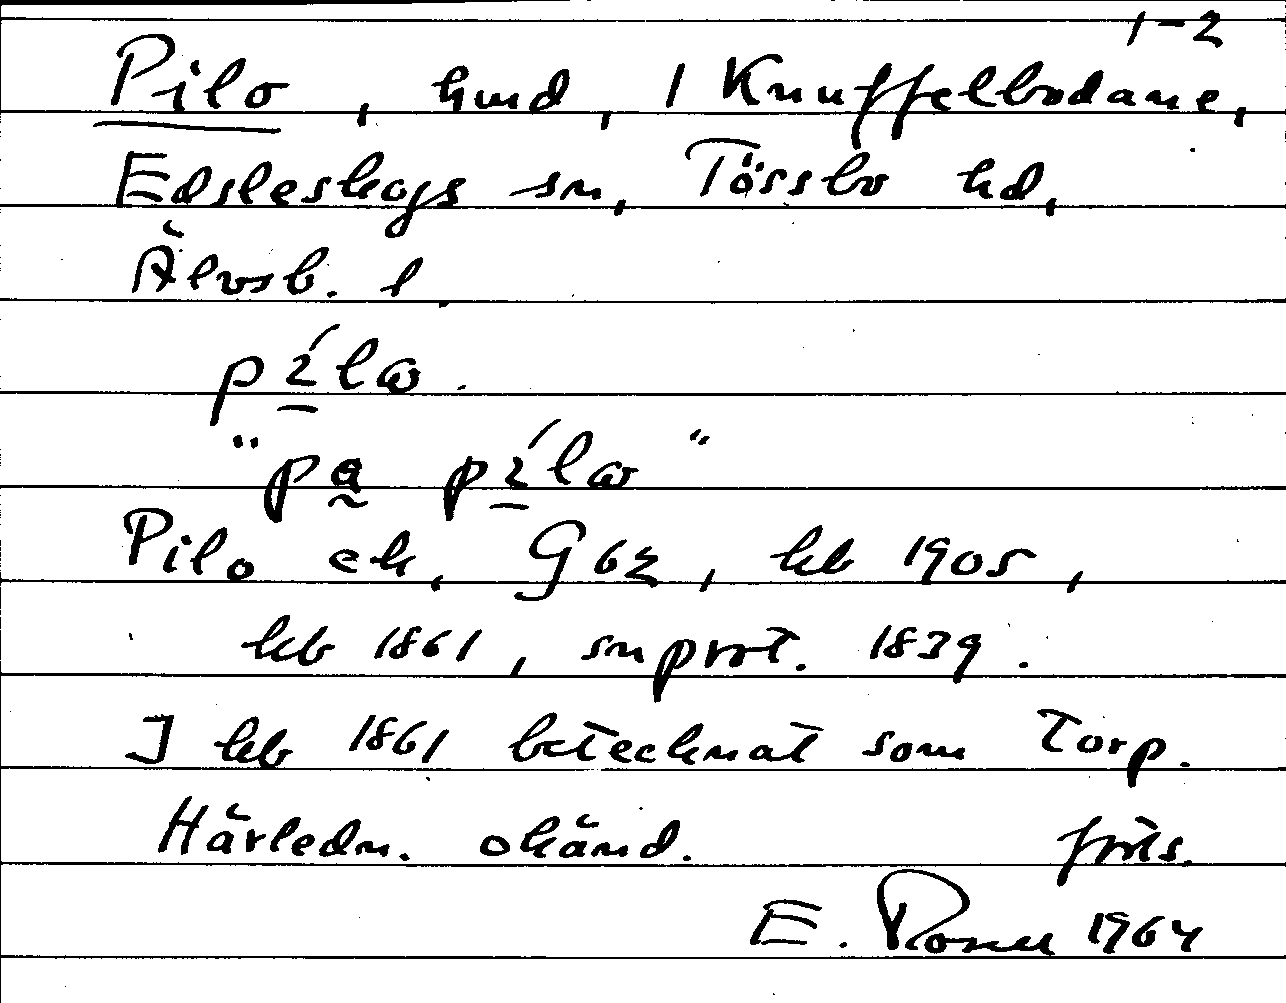 1-2
Pilo, hmd, 1 Knuffelbodane,
Edsleskogs sn, Tössbo hd,
Älvsb. l.
pílω.
"pa pílω"
Pilo ek, G 62, kb 1905,
kb 1861, snprot. 1839.
I kb 1861 betecknat som torp.
Härledn. okänd. forts.
E. 1964